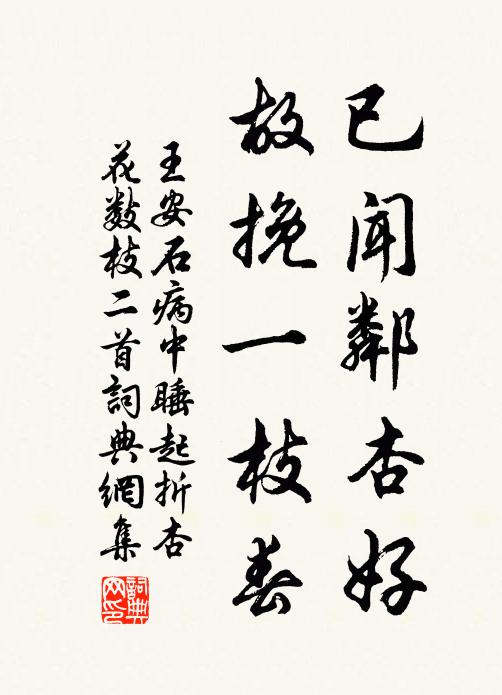 已聞鄰杏好
故挽一枝春
王安石病中睡起折杏
花數枝二首詞典網集
詞典
网印